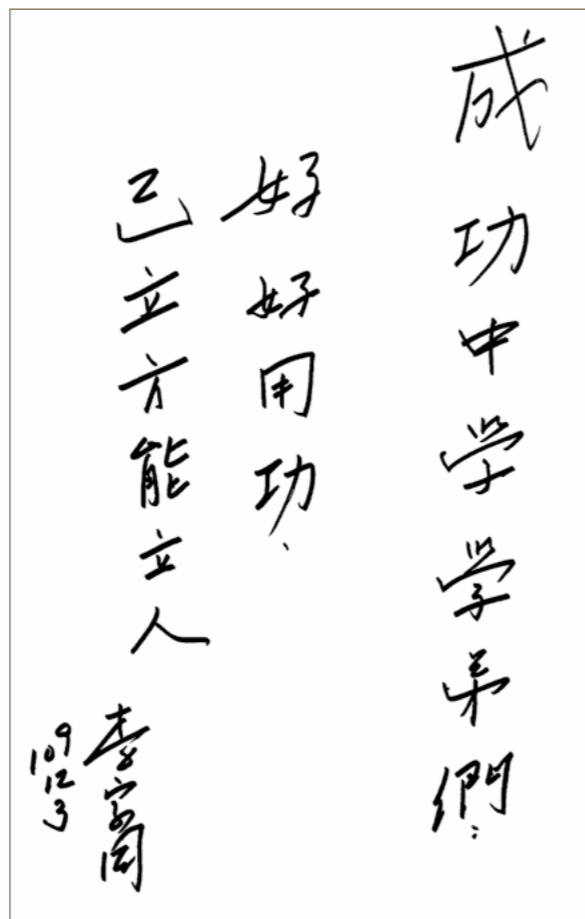 成功中学学弟們：
好好用功，
己立方能立人
李家同
109
12
3